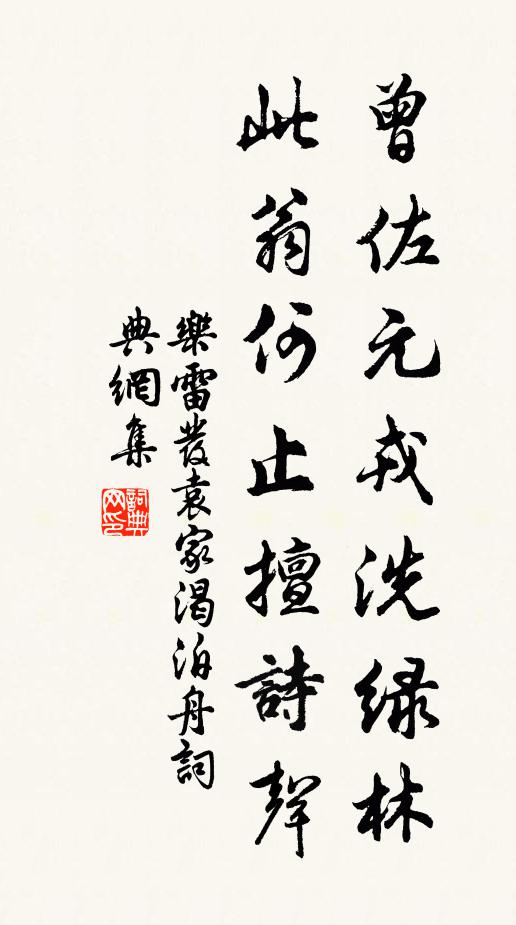 曾佐元戎洗緑林
此翁何止擅詩聲
樂雷發袁家渴泊舟詞
典網集
詞典网印